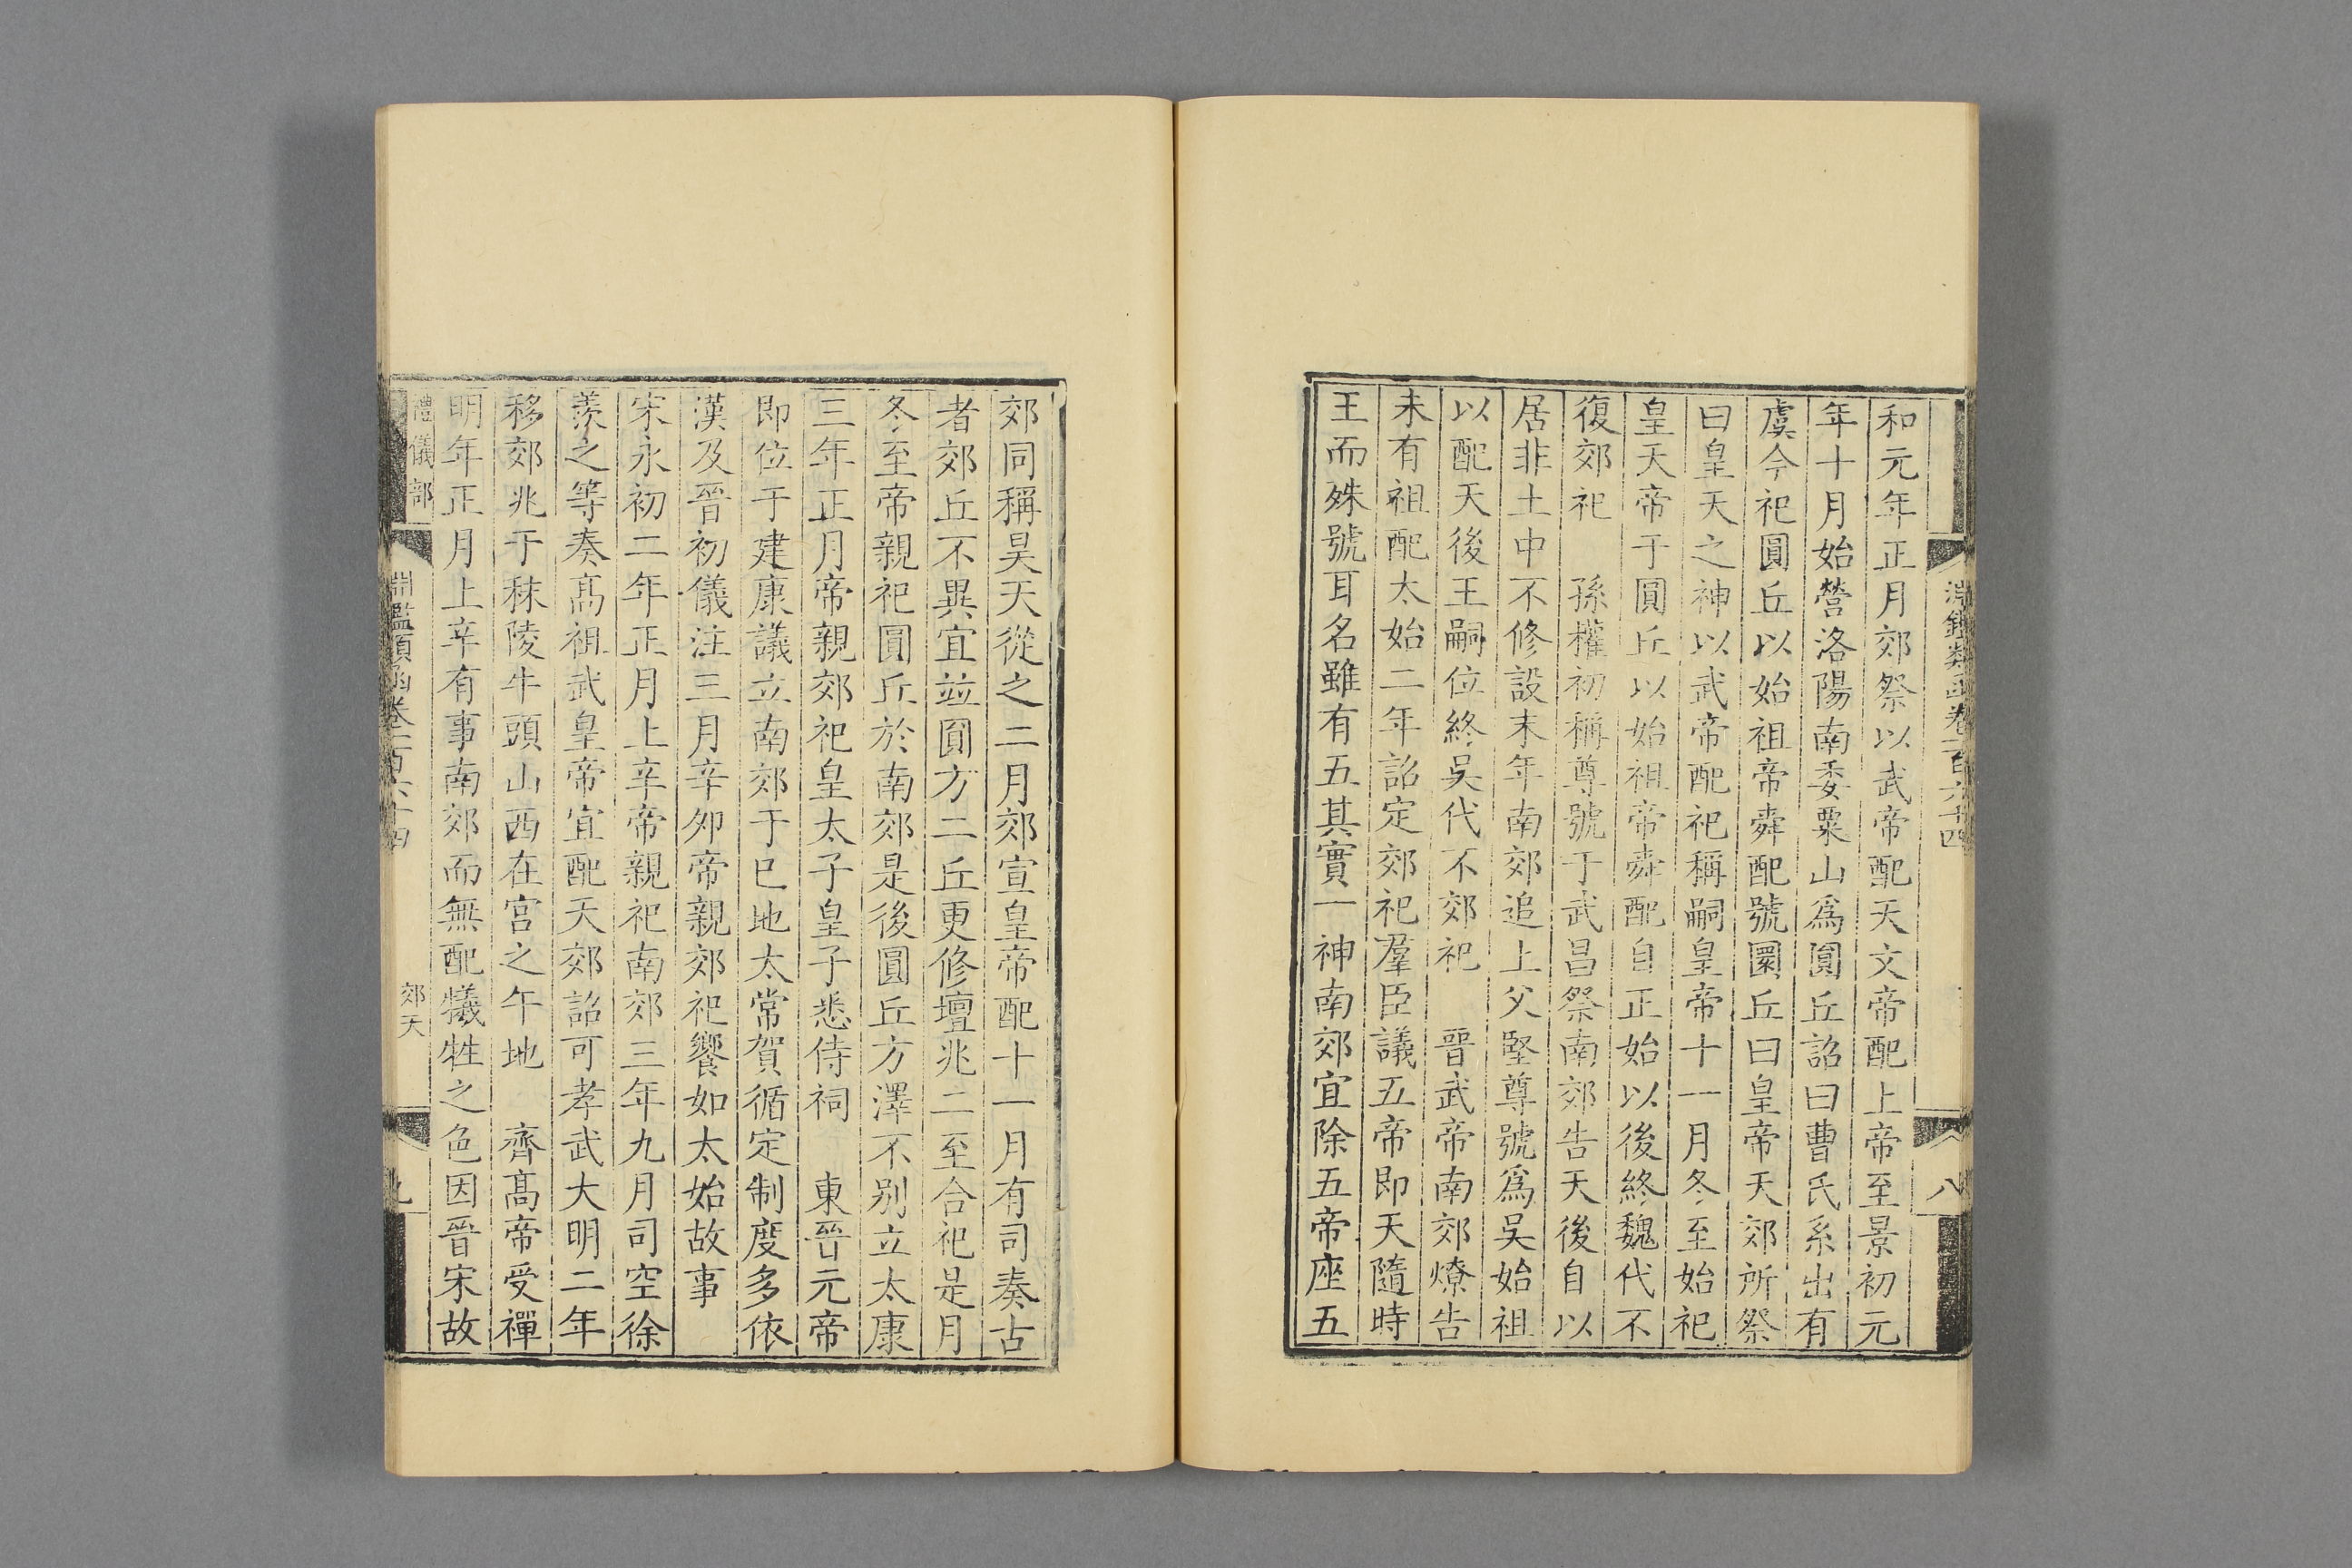 淵鑑類函卷一百六十四
八
和元年正月郊祭以武帝配天文帝配上帝至景初元
年十月始營洛陽南委粟山爲圓丘詔曰曹氏系出有
虞今祀圓丘以始祖帝舜配號圜丘曰皇帝天郊所祭
曰皇天之神以武帝配祀稱嗣皇帝十一月冬至始祀
皇天帝于圓丘以始祖帝舜配自正始以後終魏代不
復郊祀　孫權初稱尊號于武昌祭南郊告天後自以
居非土中不修設末年南郊追上父堅尊號爲吳始祖
以配天後王嗣位終吳代不郊祀　晉武帝南郊燎告
未有祖配太始二年詔定郊祀羣臣議五帝即天隨時
王而殊號耳名雖有五其實一神南郊宜除五帝座五
郊同稱昊天從之二月郊宣皇帝配十一月有司奏古
者郊丘不異宜竝圓方二丘更修壇兆二至合祀是月
冬至帝親祀圓丘於南郊是後圓丘方澤不别立太康
三年正月帝親郊祀皇太子皇子悉侍祠　東晉元帝
即位于建康議立南郊于巳地太常賀循定制度多依
漢及晉初儀注三月辛夘帝親郊祀饗如太始故事
宋永初二年正月上辛帝親祀南郊三年九月司空徐
羨之等奏髙祖武皇帝宜配天郊詔可孝武大明二年
移郊兆于秣陵牛頭山西在宫之午地　齊髙帝受禪
明年正月上辛有事南郊而無配犧牲之色因晉宋故
禮儀部
淵鑑類函卷一百六十四
郊天
九